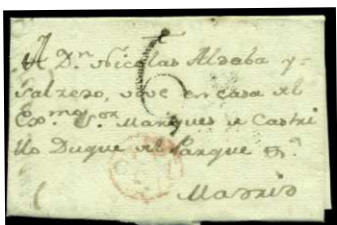 A Dn. Nicolas Aldaba y
Salzedo, vive en casa del
Exmo. Sor. Marques de Castri
llo Duque del Parque &a.
Madrid